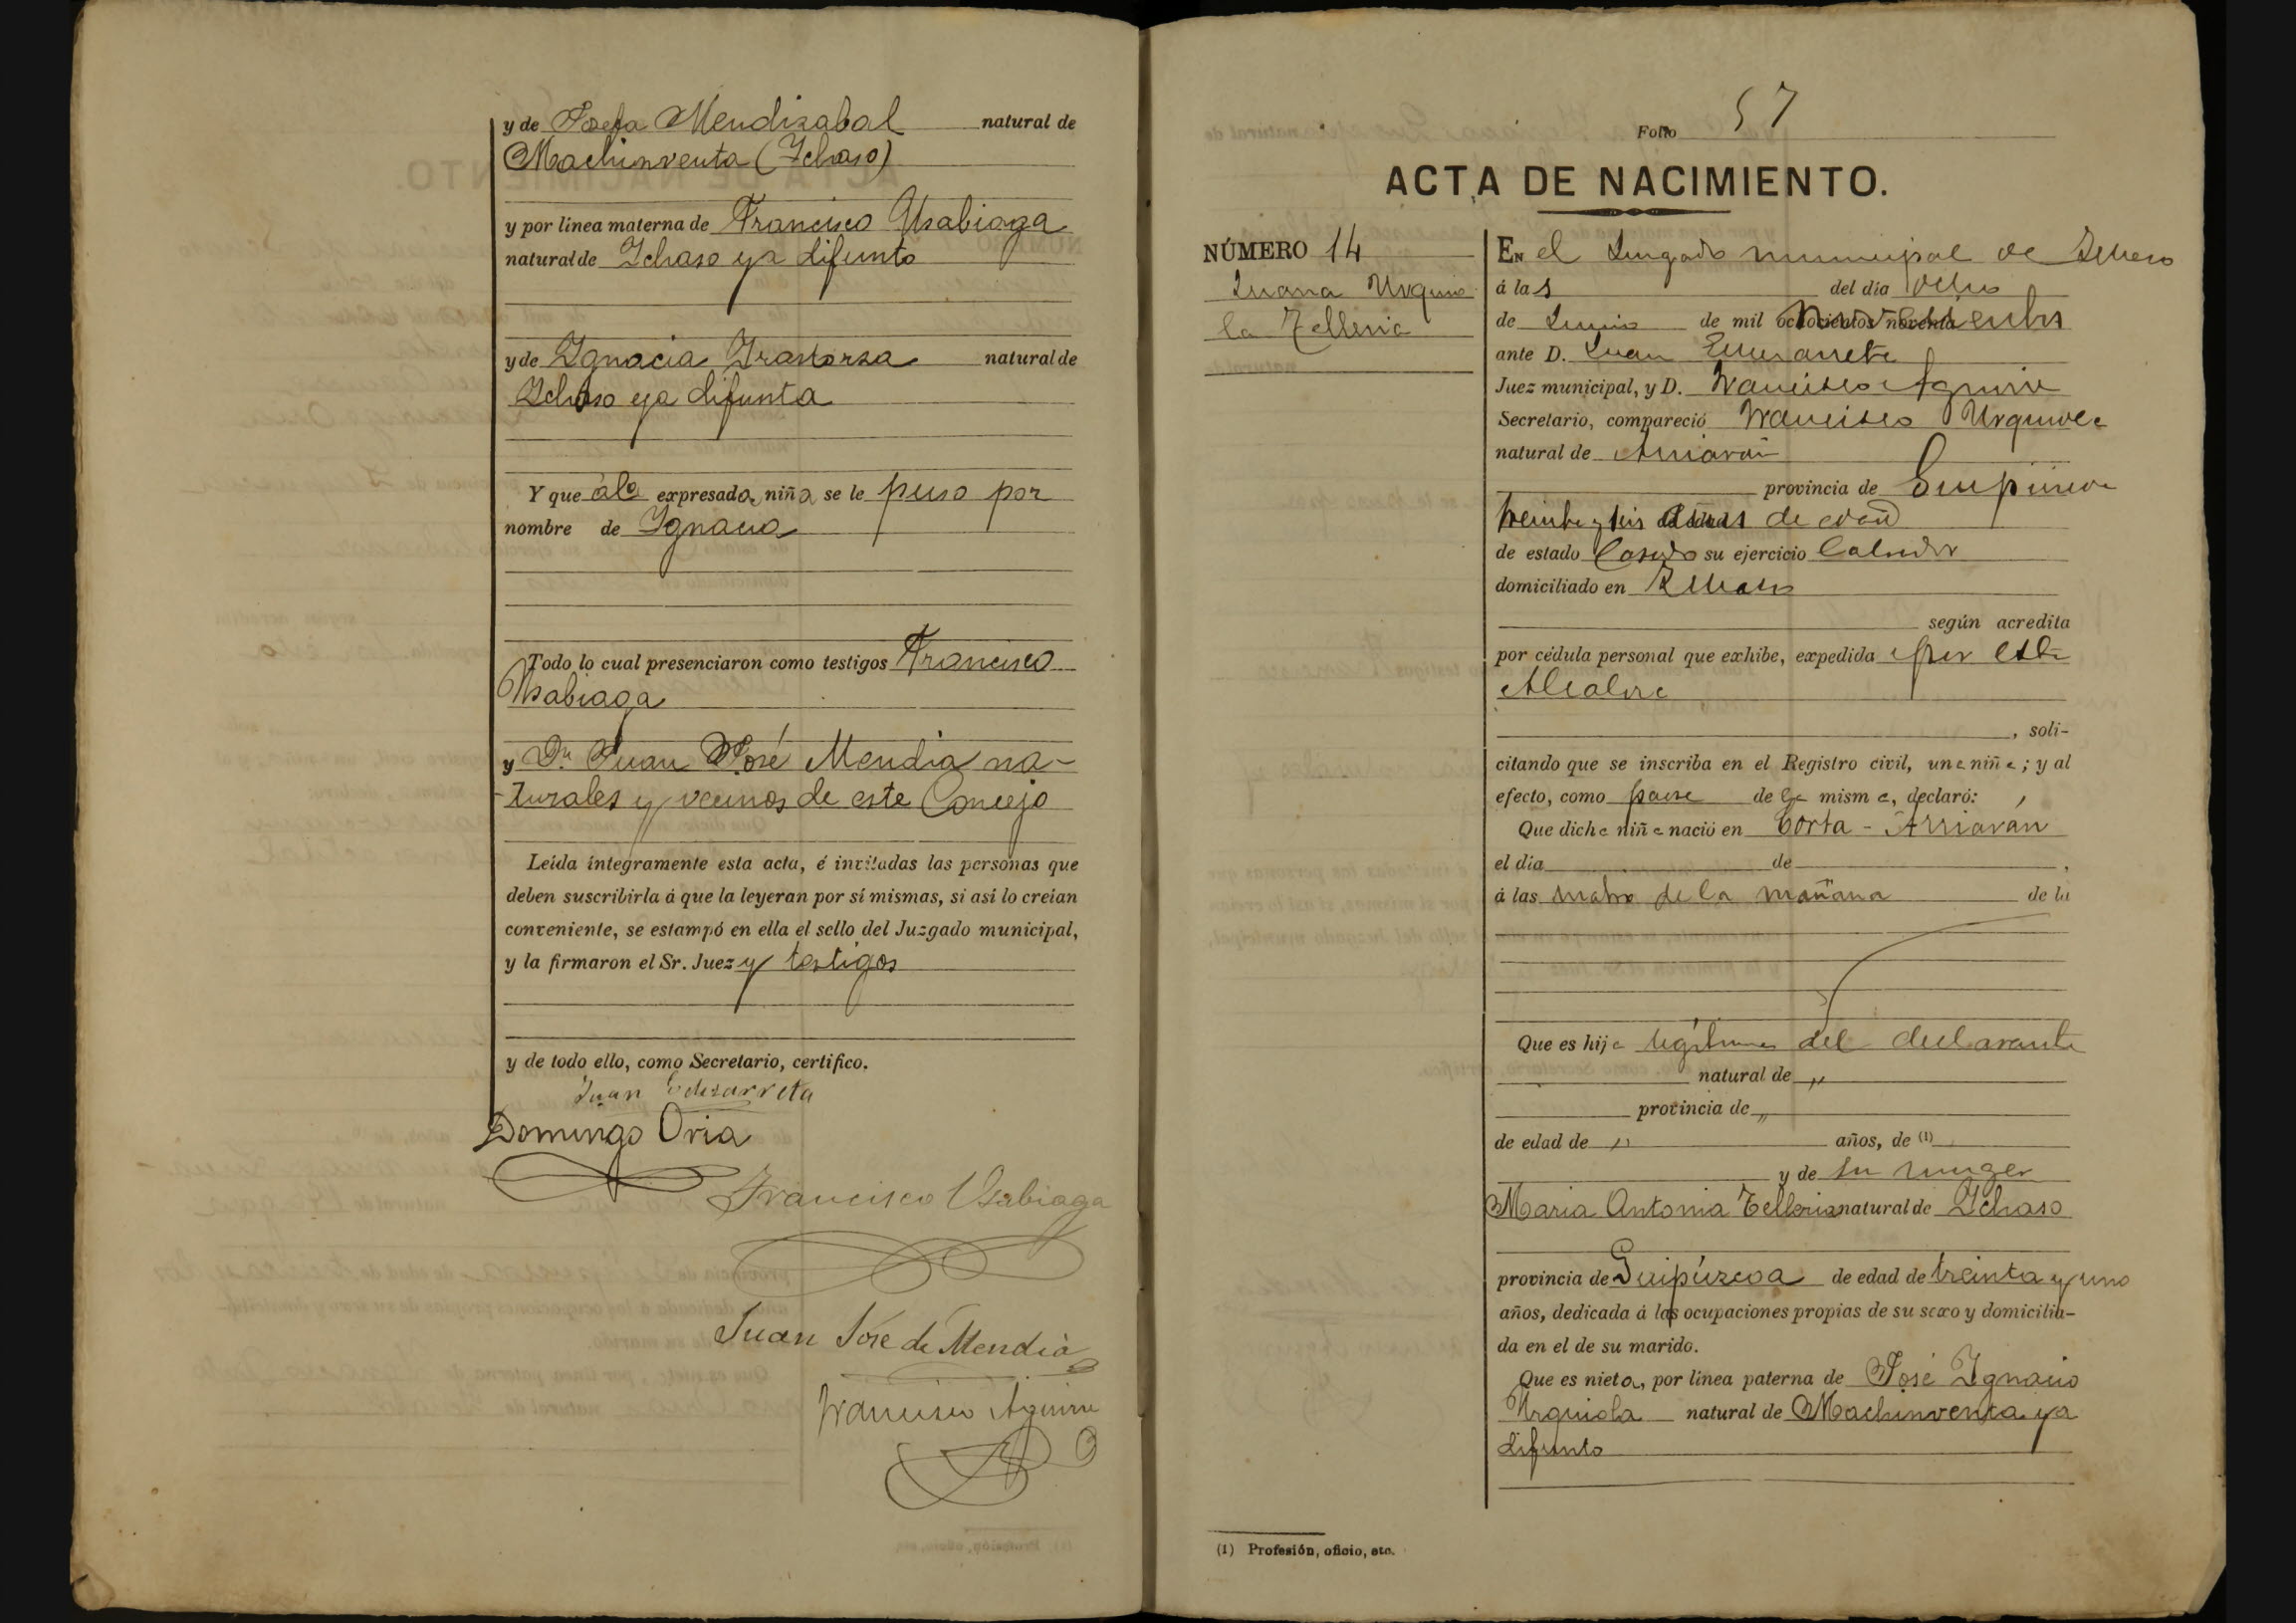 y de Josefa Mendizabal natural de
Machinventa (Ichaso)
y por línea materna de Francisco Usabiaga
natural de Ichaso ya difunto
y de Ignacia Irastorza natural de
Ichaso ya difunta
Y que á la expresada niña se le puso por
nombre de Ignacia
Todo lo cual presenciaron como testigos Francisco
Usabiaga
y Dn. Juan José Mendia na-
-turales y vecinos de este Concejo
Leída íntegramente esta acta, é invitadas las personas que
deben suscribirla á que la leyeran por sí mismas, si así lo creían
conveniente, se estampó en ella el sello del Juzgado municipal,
y la firmaron el Sr. Juez y testigos
y de todo ello, como Secretario, certifico.
Juan Echezarreta
Domingo Oria
Francisco Usabiaga
Juan José de Mendia
Francisco Aguirre
Folio 57
ACTA DE NACIMIENTO.
NÚMERO 14
Juana Urquio
la Telleria
EN el Juzgado municipal de Ichaso
á las del día ocho
de Junio de mil ochocientos noventa
ante D. Juan Echezarreta
Juez municipal, y D. Francisco Aguirre
Secretario, compareció Francisco Urquiola
natural de Arriaran
provincia de Guipúzcoa
treinta y seis años de edad
de estado Casado su ejercicio Labrador
domiciliado en Ichaso
según acredita
por cédula personal que exhibe, expedida por esta
Alcaldia
, soli-
citando que se inscriba en el Registro civil, una niña; y al
efecto, como padre de la misma, declaró:
Que dicha niña nació en Borta - Arriaran
el día de ,
á las cuatro de la mañana de la
Que es hija legítima del declarante
natural de "
provincia de "
de edad de " años, de (1)
y de su muger
Maria Antonia Telleria natural de Ichaso
provincia de Guipúzcoa de edad de treinta y uno
años, dedicada á las ocupaciones propias de su sexo y domicilia-
da en el de su marido.
Que es nieta, por línea paterna de José Ignacio
Urquiola natural de Machinventa ya
difunto
(1) Profesión, oficio, etc.